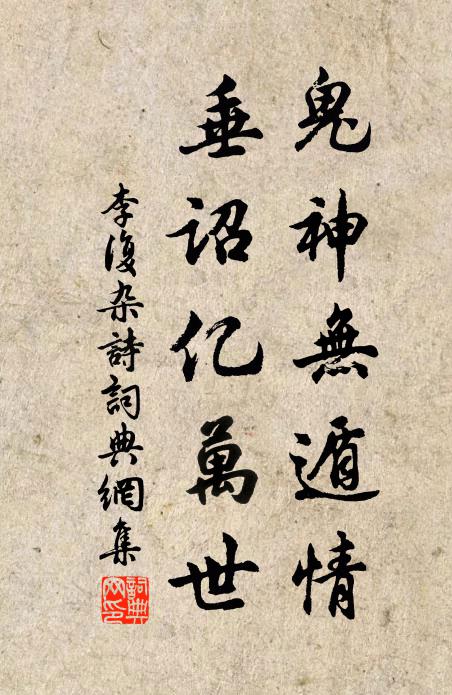 鬼神無遁情
垂詔亿萬世
李復杂詩詞典網集
詞典網印